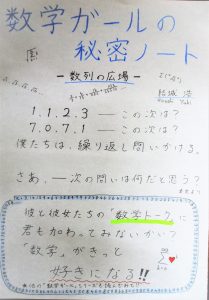 数学ガールの
秘密ノート
－数列の広場－
結城 浩
1.1.2.3 ― この次は？
7.0.7.1 ― この次は？
僕たちは、繰り返し問いかける。
さあ、― 次の問いは何だと思う？
彼と彼女たちの"数学トーク"に
君も加わってみないかい？
「数学」がきっと
好きになる!!